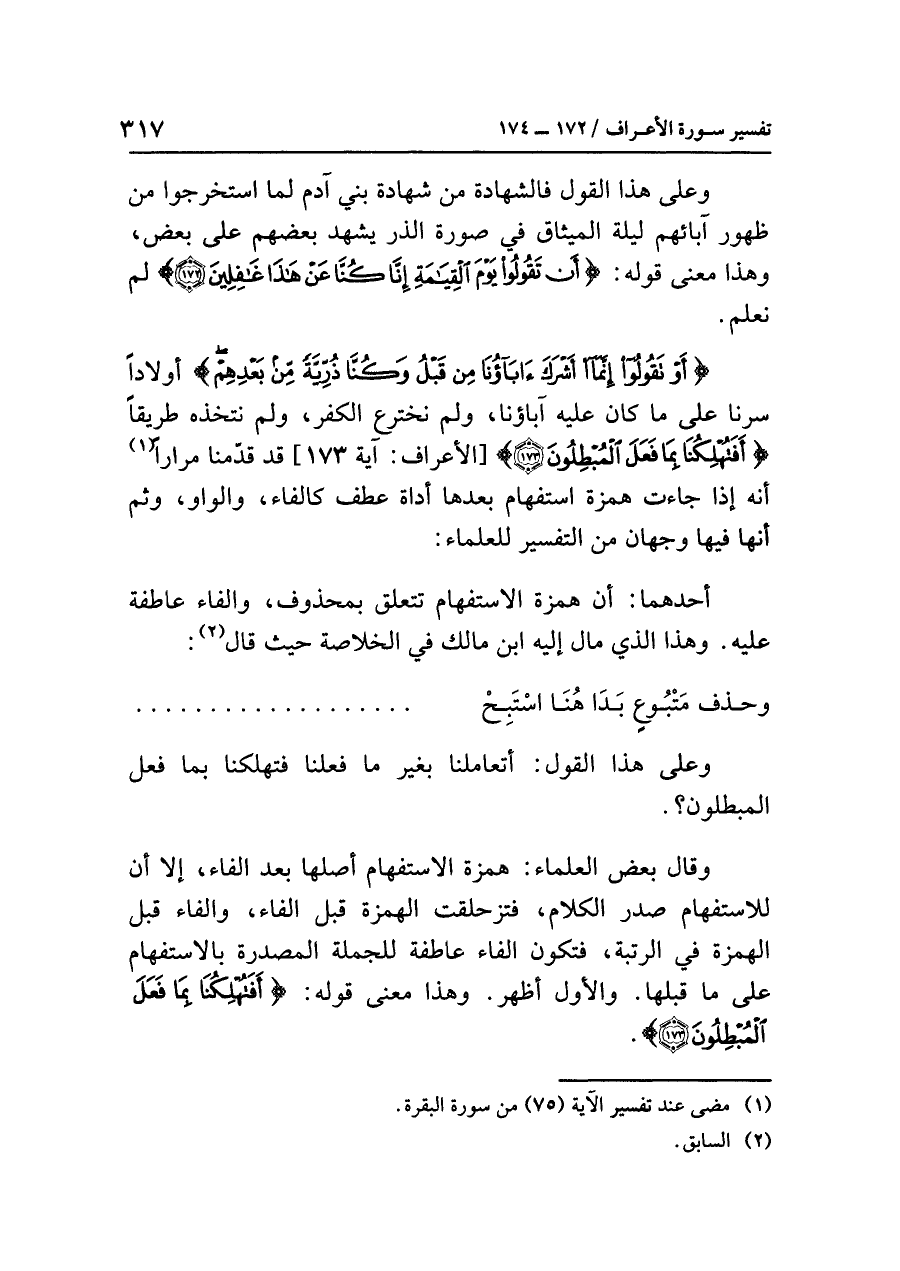 تفسير سورة الأعراف / ١٧٢ ــ ١٧٤
٣١٧
وعلى هذا القول فالشهادة من شهادة بني آدم لما استخرجوا من
ظهور آبائهم ليلة الميثاق في صورة الذر يشهد بعضهم على بعض،
وهذا معنى قوله: ﴿أَن تَقُولُوا۟ يَوْمَ ٱلْقِيَـٰمَةِ إِنَّا كُنَّا عَنْ هَـٰذَا غَـٰفِلِينَ ١٧٢﴾ لم
نعلم.
﴿أَوْ نَقُولُوٓا۟ إِنَّمَآ أَشْرَكَ ءَابَآؤُنَا مِن قَبْلُ وَكُنَّا ذُرِّيَّةً مِّنۢ بَعْدِهِمْۖ﴾ أولاداً
سرنا على ما كان عليه آباؤنا، ولم نخترع الكفر، ولم نتخذه طريقاً
﴿أَفَتُهْلِكُنَا بِمَا فَعَلَ ٱلْمُبْطِلُونَ ١٧٣﴾ [الأعراف: آية ١٧٣] قد قدّمنا مراراً(١)
أنه إذا جاءت همزة استفهام بعدها أداة عطف كالفاء، والواو، وثم
أنها فيها وجهان من التفسير للعلماء:
أحدهما: أن همزة الاستفهام تتعلق بمحذوف، والفاء عاطفة
عليه. وهذا الذي مال إليه ابن مالك في الخلاصة حيث قال(٢):
وحذف مَتْبُوعٍ بَدَا هُنَا اسْتَبِحْ ...................
وعلى هذا القول: أتعاملنا بغير ما فعلنا فتهلكنا بما فعل
المبطلون؟.
وقال بعض العلماء: همزة الاستفهام أصلها بعد الفاء، إلا أن
للاستفهام صدر الكلام، فتزحلقت الهمزة قبل الفاء، والفاء قبل
الهمزة في الرتبة، فتكون الفاء عاطفة للجملة المصدرة بالاستفهام
على ما قبلها. والأول أظهر. وهذا معنى قوله: ﴿أَفَتُهْلِكُنَا بِمَا فَعَلَ
ٱلْمُبْطِلُونَ ١٧٣﴾.
(١) مضى عند تفسير الآية (٧٥) من سورة البقرة.
(٢) السابق.